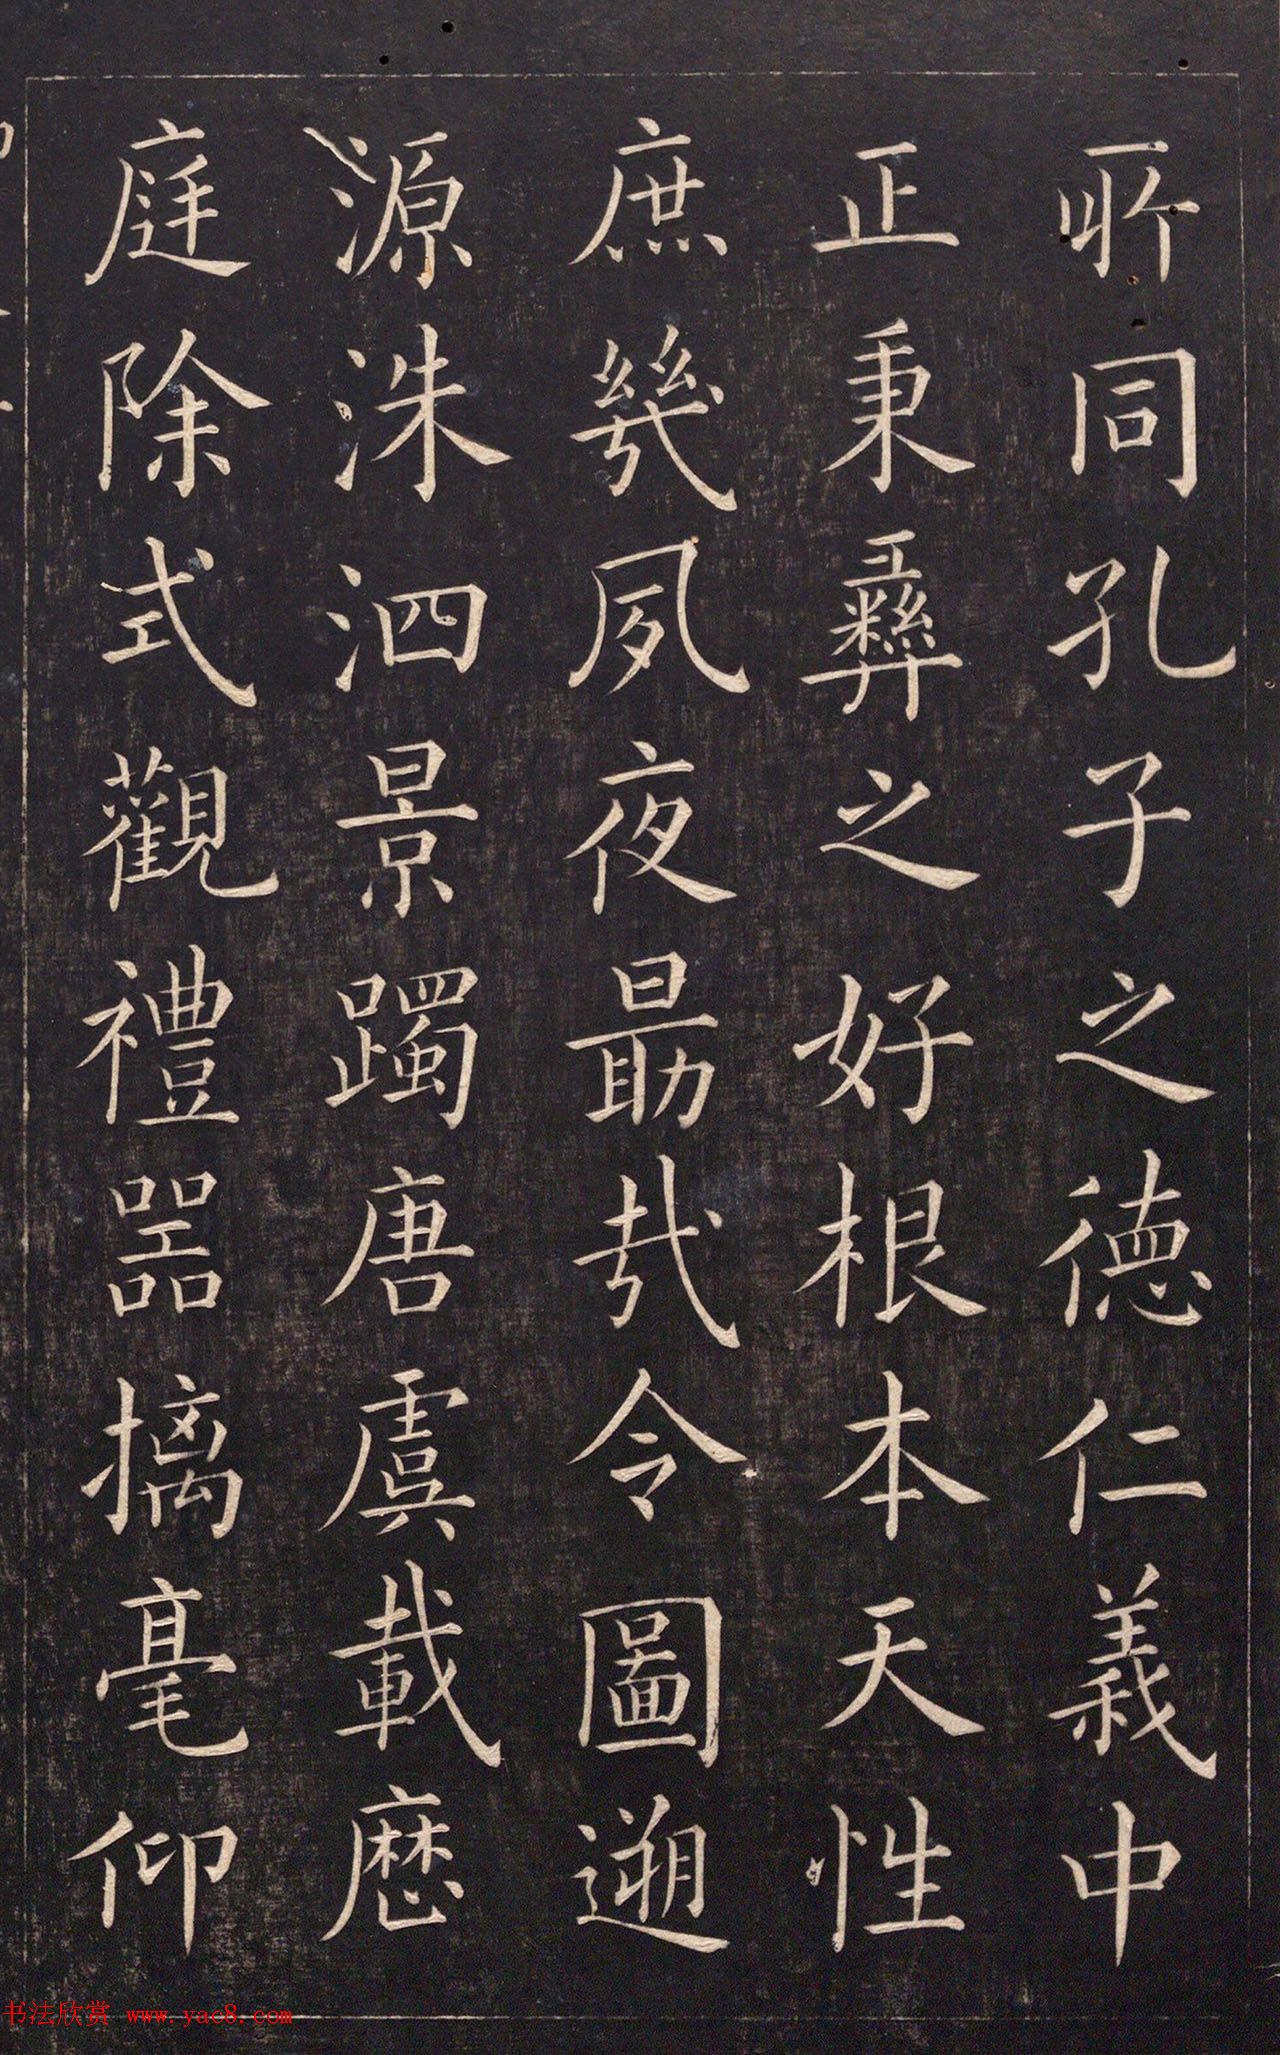 所同孔子之德仁義中
正秉彞之好根本天性
庶幾夙夜勗哉令圖遡
源洙泗景躅唐虞載歷
庭除式觀禮器摛毫仰
书法欣赏 www.yac8.com